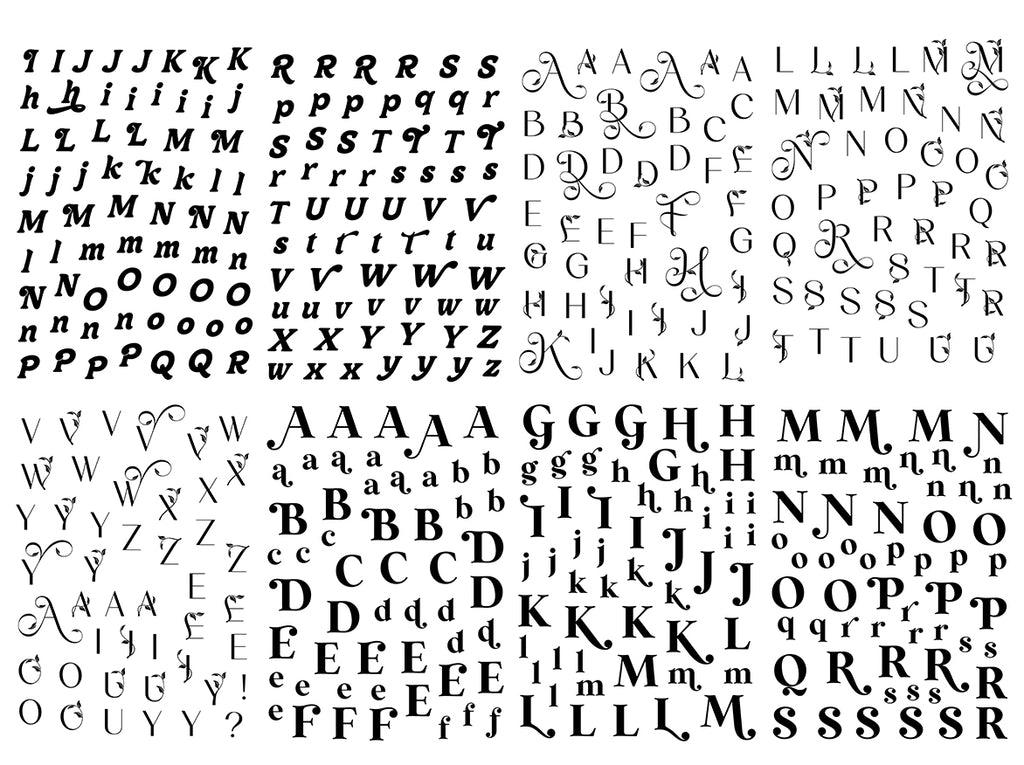 I I J J J K K K
h h i i i i i j
L L L L M M
j j j k k k l l
M M M N N N
l l m m m m n
N N O O O O O
n n n n o o o o
P P P P Q Q R
R R R R S S
p p p p q q r
S S S T T T T
r r r r s s s s
T U U U V V
s t t t t t u
V V W W W
u u v v v w w
X X Y Y Y Z
w x x y y y z
A A A A A A
B B B B C C
D D D D D F E
E E E F F F
G G H H G
H H I I I J I J
K I J K K L
L L L L M M
M M M N N N
N N O O O O
O P P P P Q
Q R R R R R
S S S S S S T T R
T T T U U U
V V V V V W
W W W X X X
Y Y Y Z Z Z Z
Y Y E
A A A A E E
I I I E
O O U U I Y !
O O U Y Y ?
A A A A A
a a a a a a a b b
B B B B b b
c c c C C C D
D D d d d D
E E E E d d
e e e e e E E E
e F F F f f f
G G G H H
g g g h G h H
I I I I h h i i
j j j j J i i i
k k k k J J
K K K K L
l l l l m M m m
L L L L M
M M M N
m m m n n n
N N N O O n n n
o o o o o p p p p
O O P P P
q q r r r r r s s
Q R R R R
s s s
S S S S S R